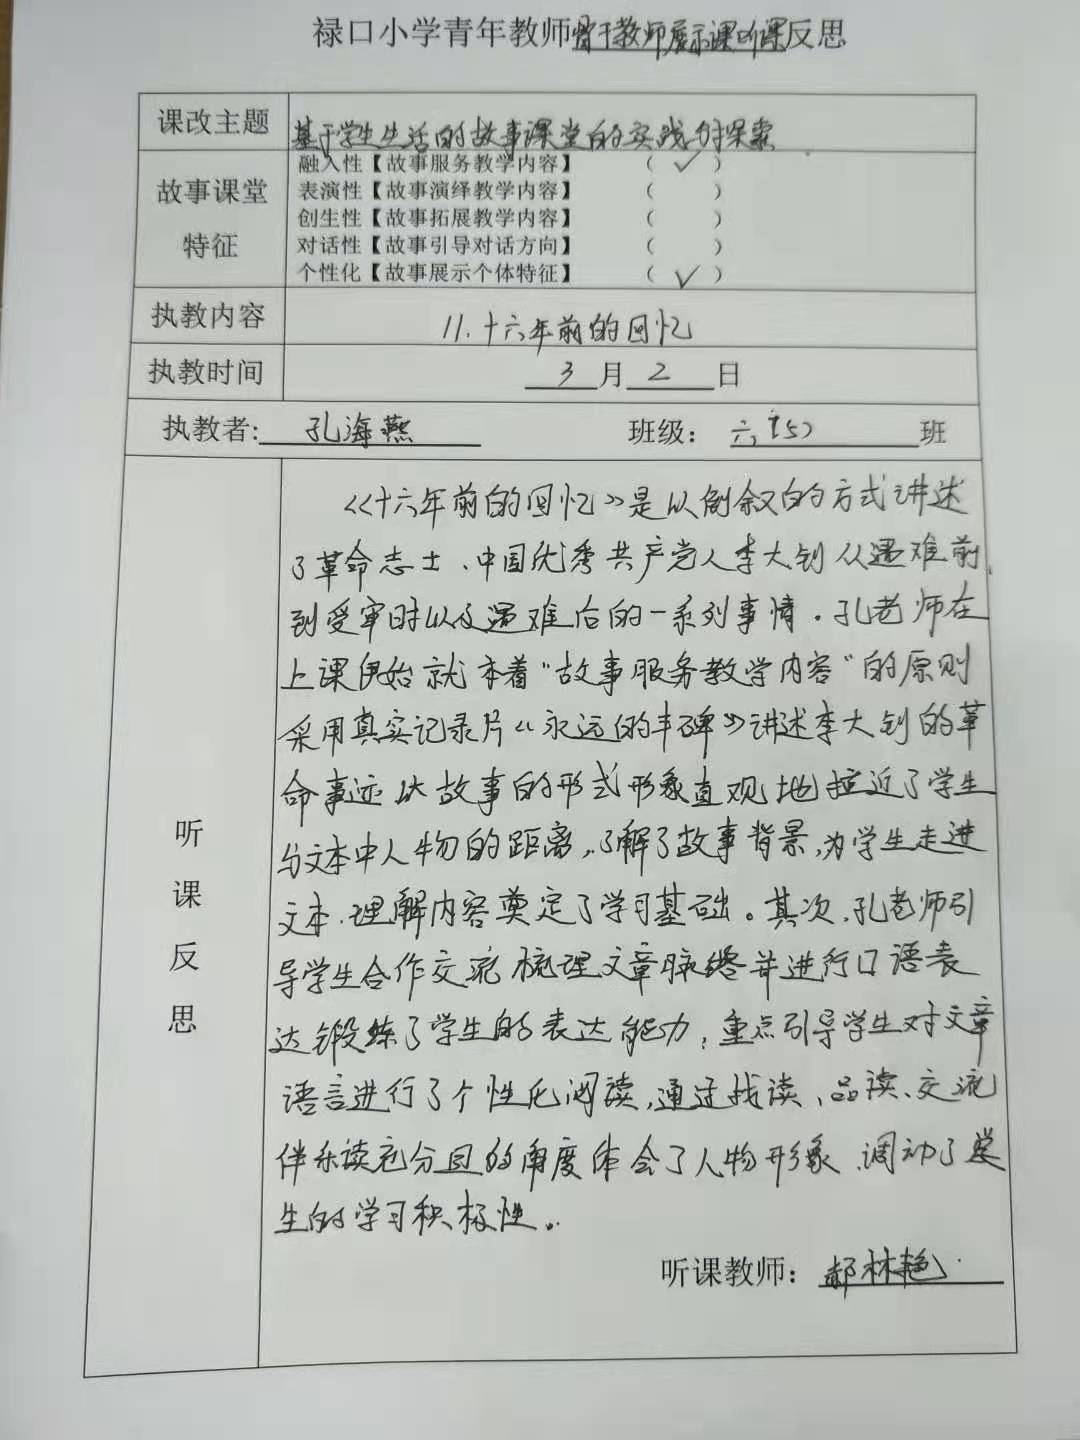 禄口小学青年教师骨干教师展示课听课反思
课改主题 基于学生生活的故事课堂的实践与探索
故事课堂
特征
融入性【故事服务教学内容】 ( ✓ )
表演性【故事演绎教学内容】 ( )
创生性【故事拓展教学内容】 ( )
对话性【故事引导对话方向】 ( )
个性化【故事展示个体特征】 ( ✓ )
执教内容 11.十六年前的回忆
执教时间 3月2日
执教者:孔海燕 班级：六(5)班
听课反思
《十六年前的回忆》是以倒叙的方式讲述
了革命志士、中国优秀共产党人李大钊从遇难前,
到受审时以及遇难后的一系列事情。孔老师在
上课伊始就本着“故事服务教学内容”的原则
采用真实记录片《永远的丰碑》讲述李大钊的革
命事迹以故事的形式形象直观地拉近了学生
与文本中人物的距离,了解了故事背景,为学生走进
文本、理解内容奠定了学习基础。其次,孔老师引
导学生合作交流梳理文章脉络并进行口语表
达锻炼了学生的表达能力,重点引导学生对文章
语言进行了个性化阅读,通过找读、品读、交流
伴乐读充分且的角度体会了人物形象、调动了学
生的学习积极性。
听课教师：郝林艳